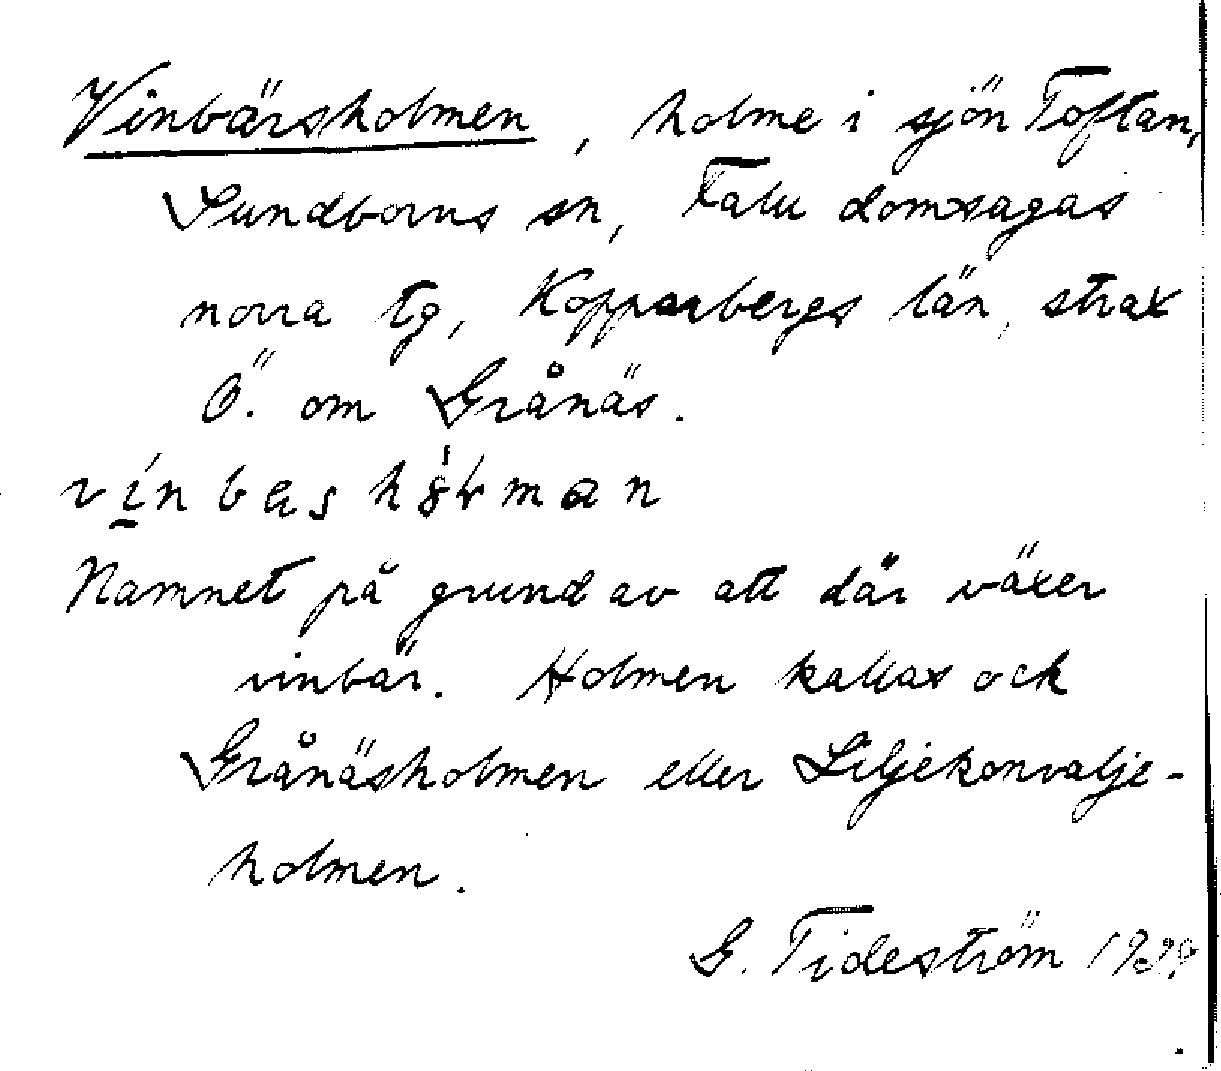 Vinbärsholmen, holme i sjön Toftan,
Sundborns sn, Falu domsagas
norra tg, Kopparbergs län, strax
Ö. om Grånäs.
Namnet på grund av att där växer
vinbär. Holmen kallas och
Grånäsholmen eller Liljekonvalje-
holmen.
G. Tideström